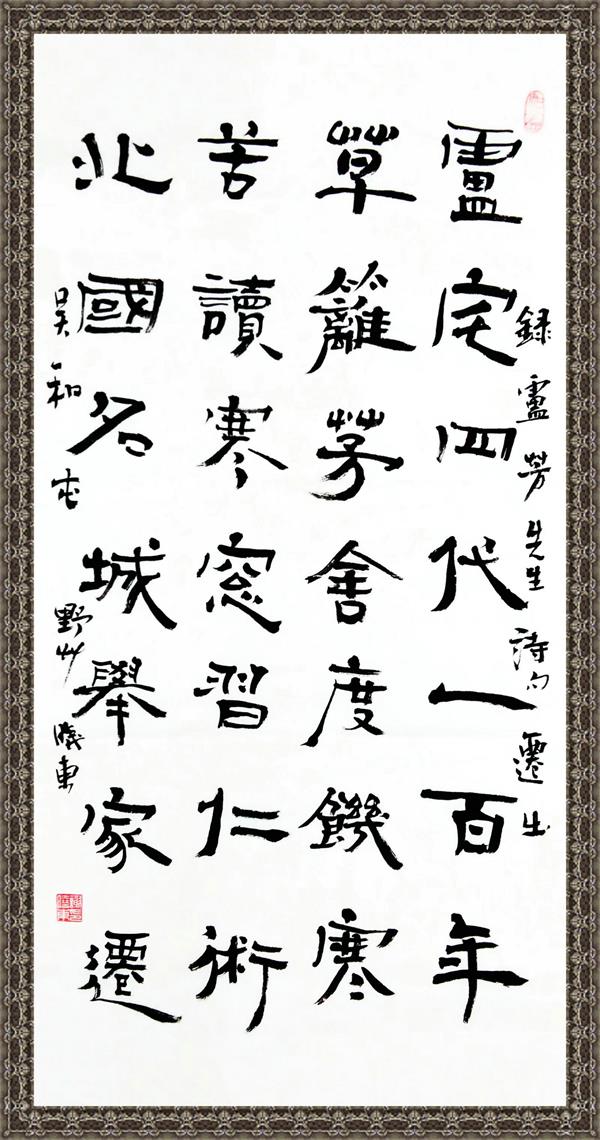 録盧芳先生詩句遷出
盧宅四代一百年
草籬茅舍度饑寒
苦讀寒窓習仁術
北國名城舉家遷
吴和屯 野艸 曉東